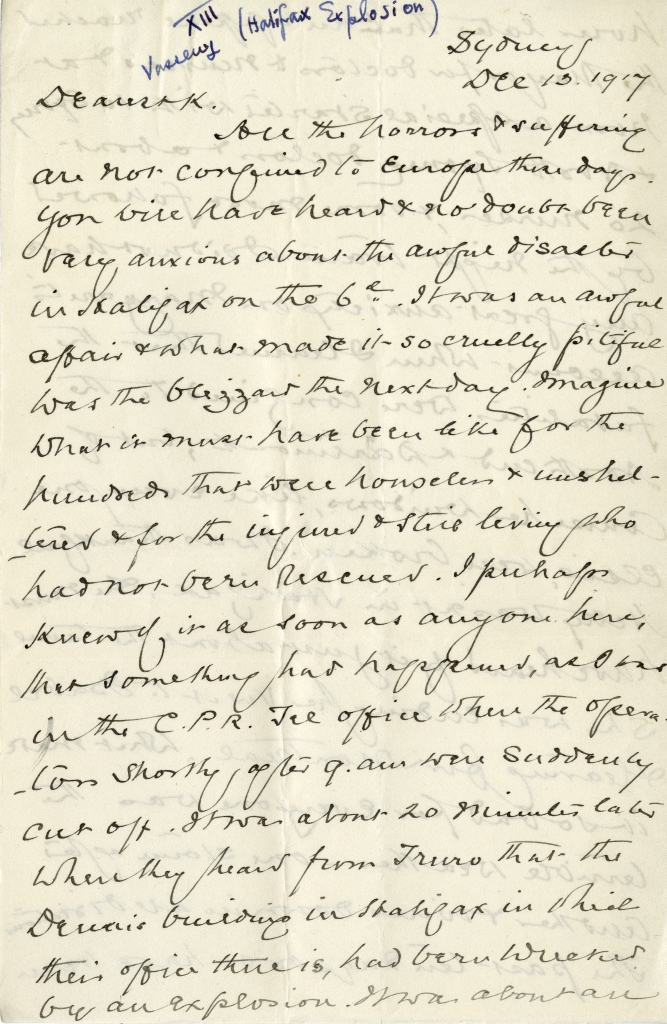 XIII (Halifax Explosion)
Sydney
Dec 13. 1917
Dearest K.
All the horrors & suffering
are not confined to Europe these days.
You will have heard & no doubt been
very anxious about the awful disaster
in Halifax on the 6th. It was an awful
affair & what made it so cruelly pitiful
was the blizzard the next day. Imagine
what it must have been like for the
hundreds that were houseless & unshel-
-tered & for the injured & still living who
had not been rescued. I perhaps
knew of it as soon as anyone here,
that something had happened, as I was
in the C.P.R. Tel office when the opera-
-tors shortly after 9. am were suddenly
cut off. It was about 20 minutes later
when they heard from Truro that the
Dennis building in Halifax in which
their office there is, had been wrecked
by an explosion. It was about an